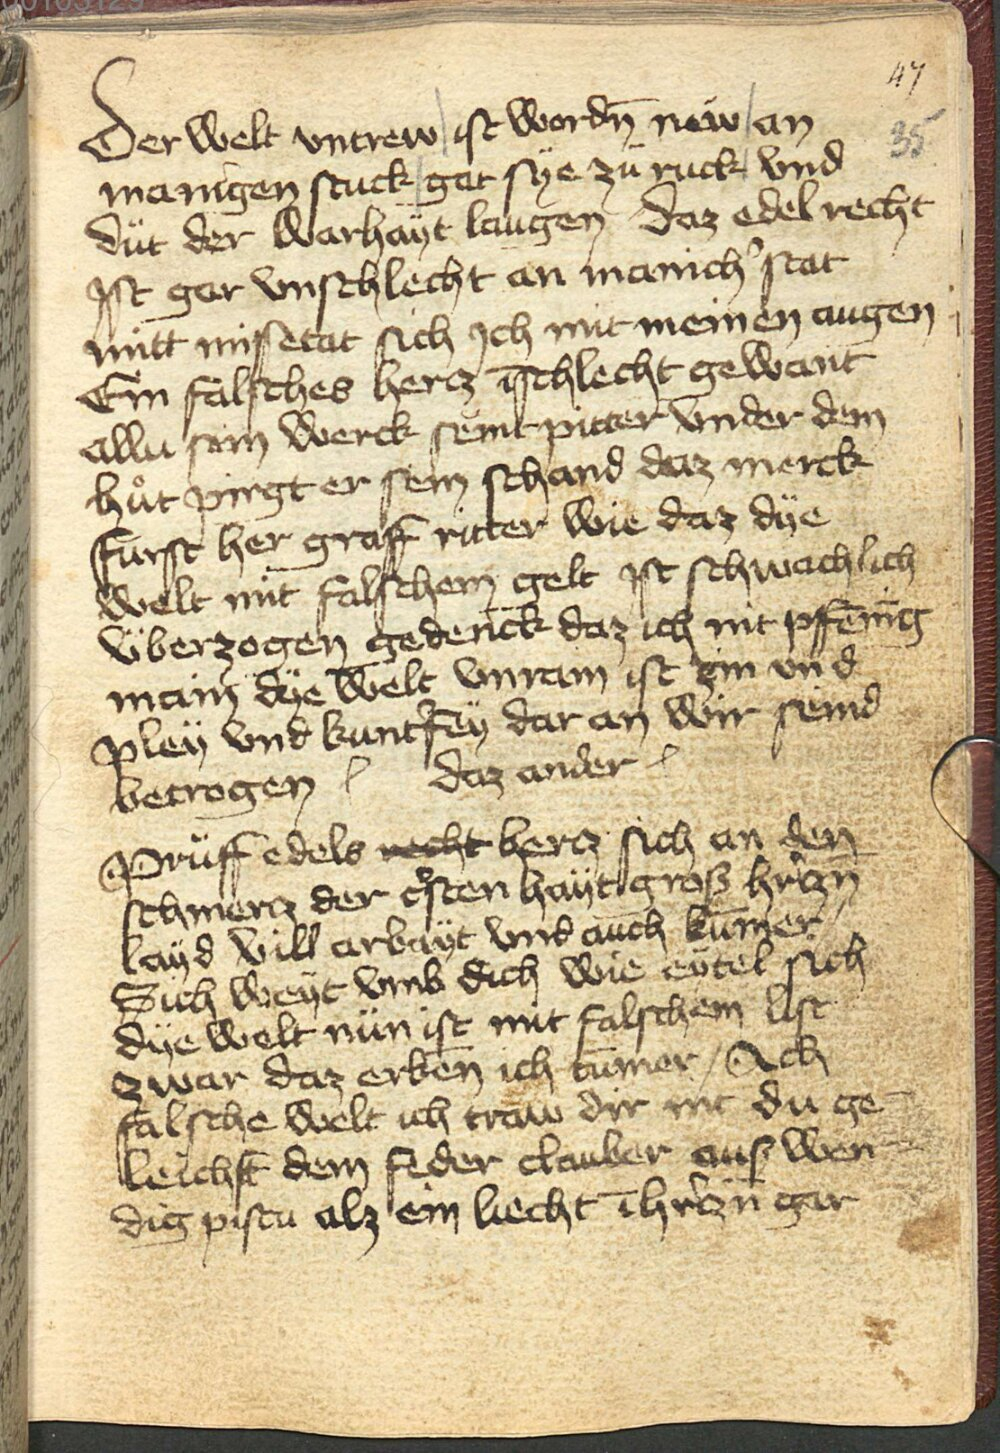 00105129
47
35
Der Welt vntrew / ist Wordn̄ new / an
manigen stuck / gat sÿe zů ruck / vnd
düt der Warhaÿt laugen daz edel recht
Ist gar vnschlecht an manich' stat
mitt missetat sich Ich mit meinen augen
Ein falsches hercz ī schlecht gewant
allu sein Werck seint pitter vnder dem
hůt pirgt er sein schand daz merck
fürst her graff ritter Wie daz dÿe
Welt mit falschem gelt Ist schwachlich
Vberzogen gedenck daz ich nit pffenig
main dÿe Welt vnrain ist zin vnd
pleÿ vnd kuntrfeÿ dar an Wir seind
betrogen / daz ander /
Prüff edels recht hercz sich an den
schmercz der c͛sten haÿt groß hr̄czn̄
laÿd vill arbaÿt vnd auch kūmer /
Sich weÿt vmb dich Wie eÿtel sich
dÿe welt nün ist mit falschem list
zwar daz erken̄ ich tūmer / Ach
falsche Welt ich traw dir nit du ge-
leichst dem feder clauber ausWen-
dig pistu alz ein liecht ī hr̄czn̄ gar